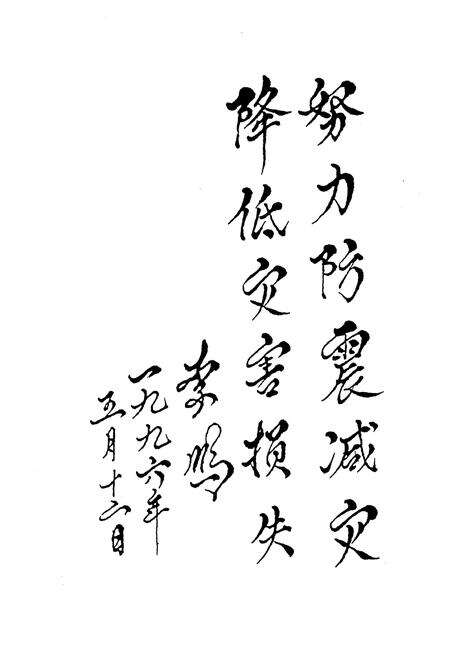 努力防震减灾
降低灾害损失
李鹏
一九九六年
五月十二日